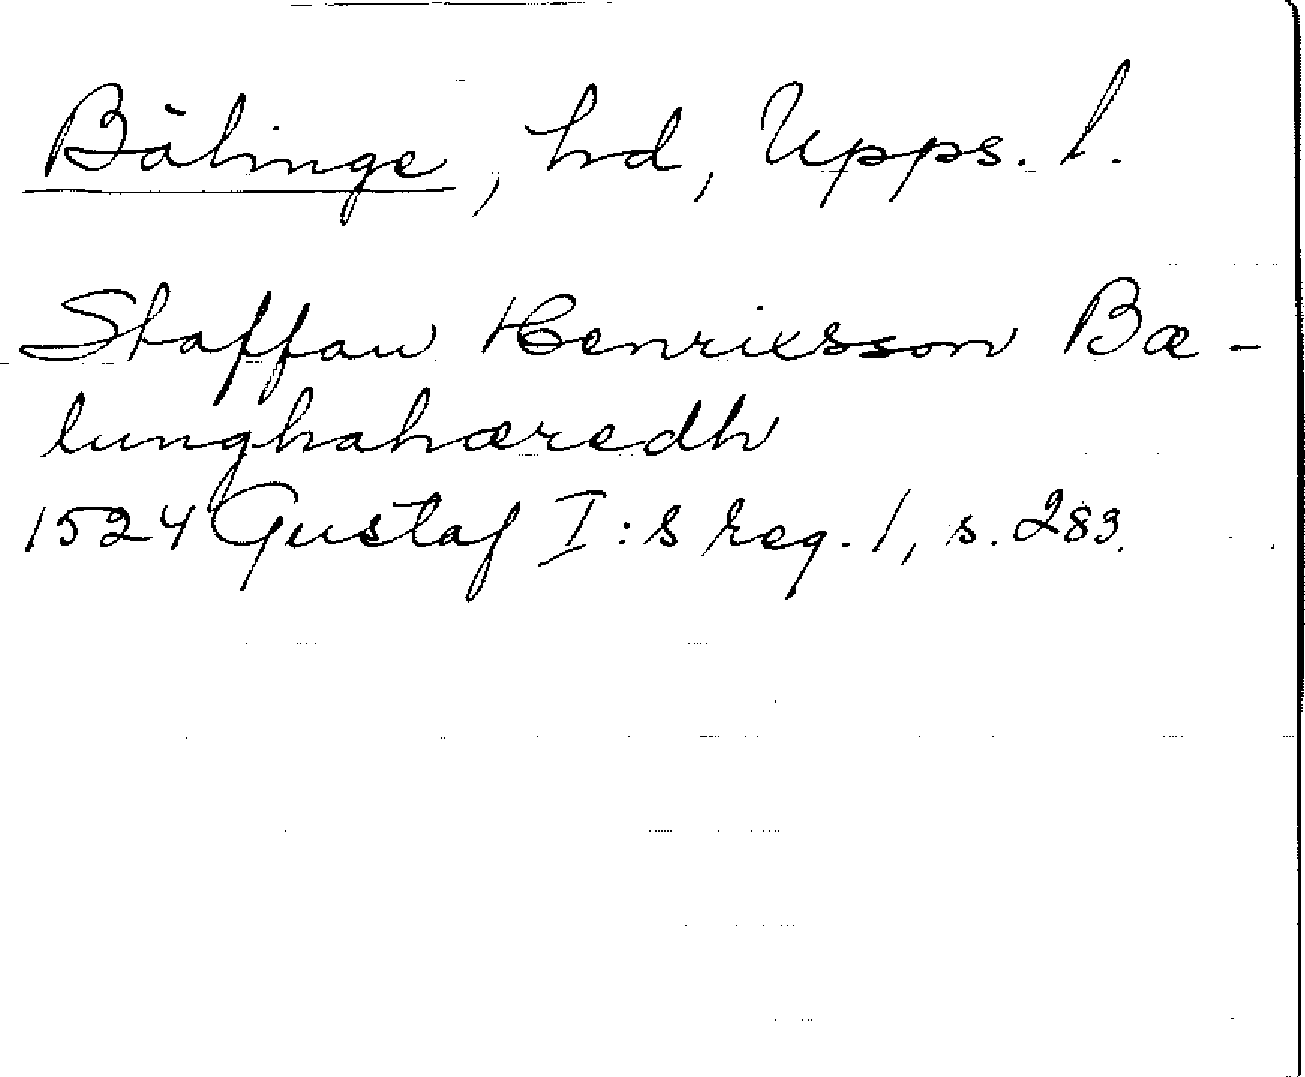 Bälinge, hd, Upps. l.
Staffan Henriksson Bæ-
lunghahæredh
1524 Gustaf I:s reg. 1, s. 283.